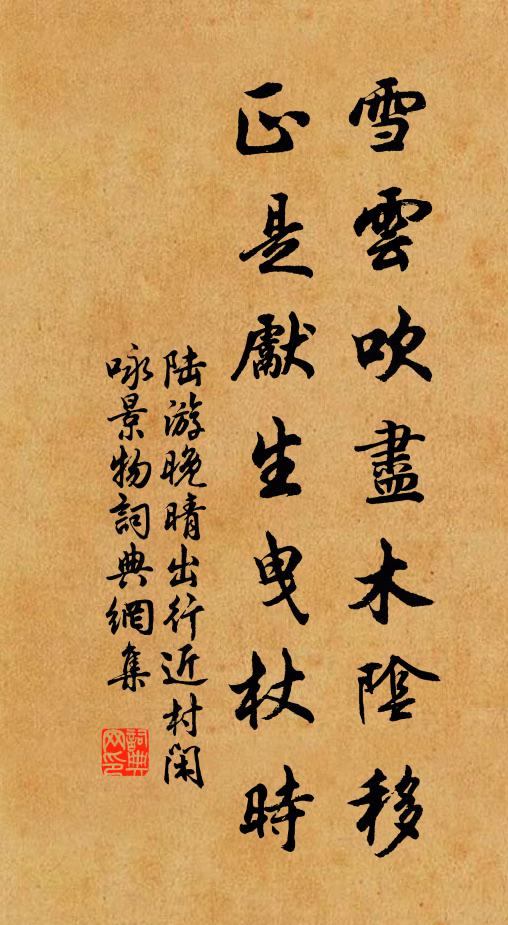 雪雲吹盡木陰移
正是獻生曳杖時
陆游晚晴出行近村闲
咏景物詞典網集
詞典网印